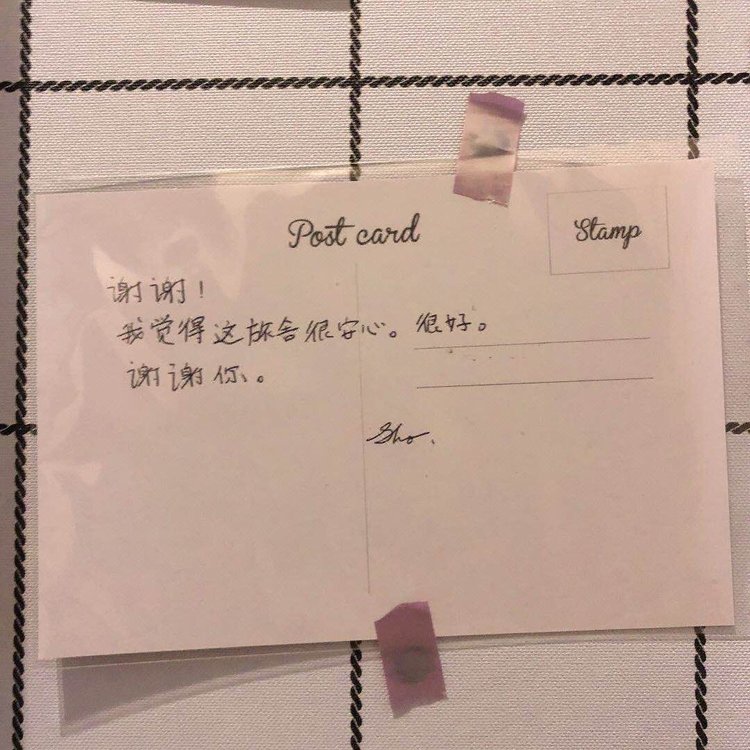 Post card
Stamp
谢谢！
我觉得这旅舍很安心。很好。
谢谢你。
Sho.